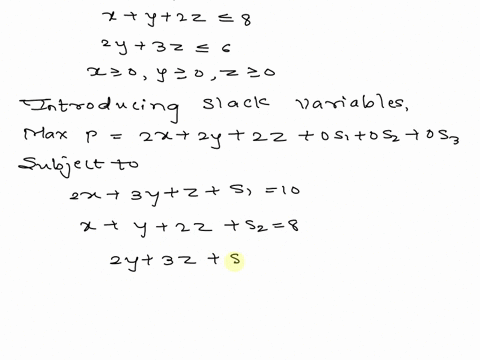 x + y + 2z ≤ 8
2y + 3z ≤ 6
x ≥ 0, y ≥ 0, z ≥ 0
Introducing slack variables,
Max P = 2x + 2y + 2z + 0s₁ + 0s₂ + 0s₃
Subject to
2x + 3y + z + s₁ = 10
x + y + 2z + s₂ = 8
2y + 3z + s